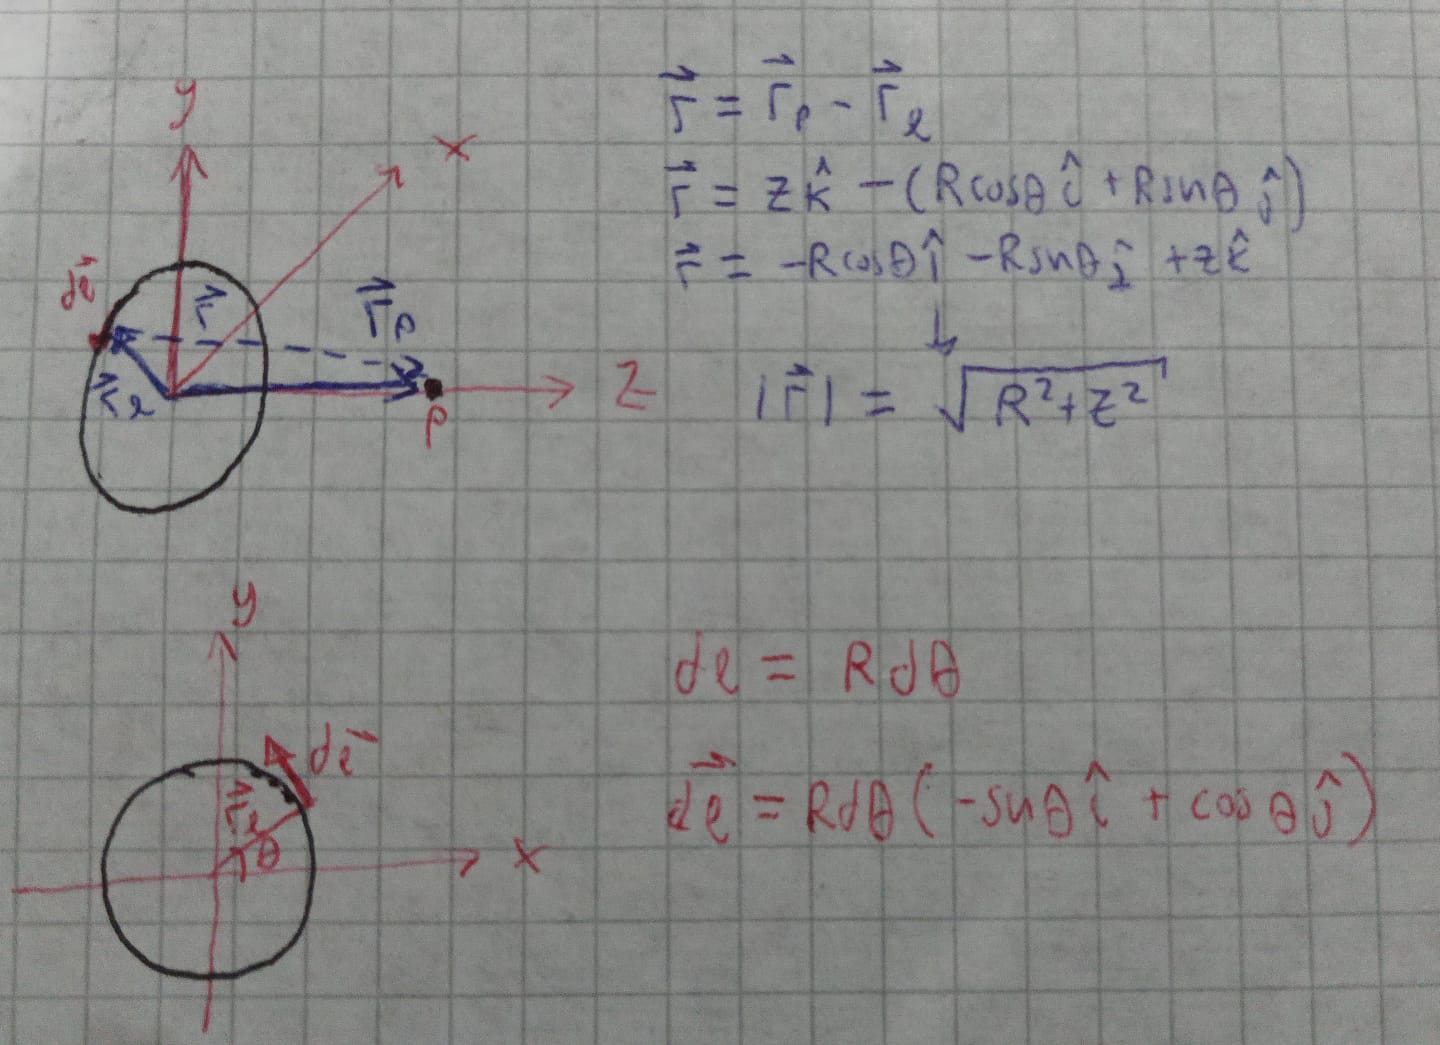 y
x
dl⃗
r⃗
r⃗ₚ
r⃗ₗ
Z
P
r⃗ = r⃗ₚ - r⃗ₗ
r⃗ = zk̂ - (Rcosθ î + Rsnθ ĵ)
r⃗ = -Rcosθ î - Rsnθ ĵ + zk̂
↓
|r⃗| = √(R²+z²)
y
dl⃗
r⃗ₗ
θ
x
dl = Rdθ
dl⃗ = Rdθ(-snθ î + cosθ ĵ)